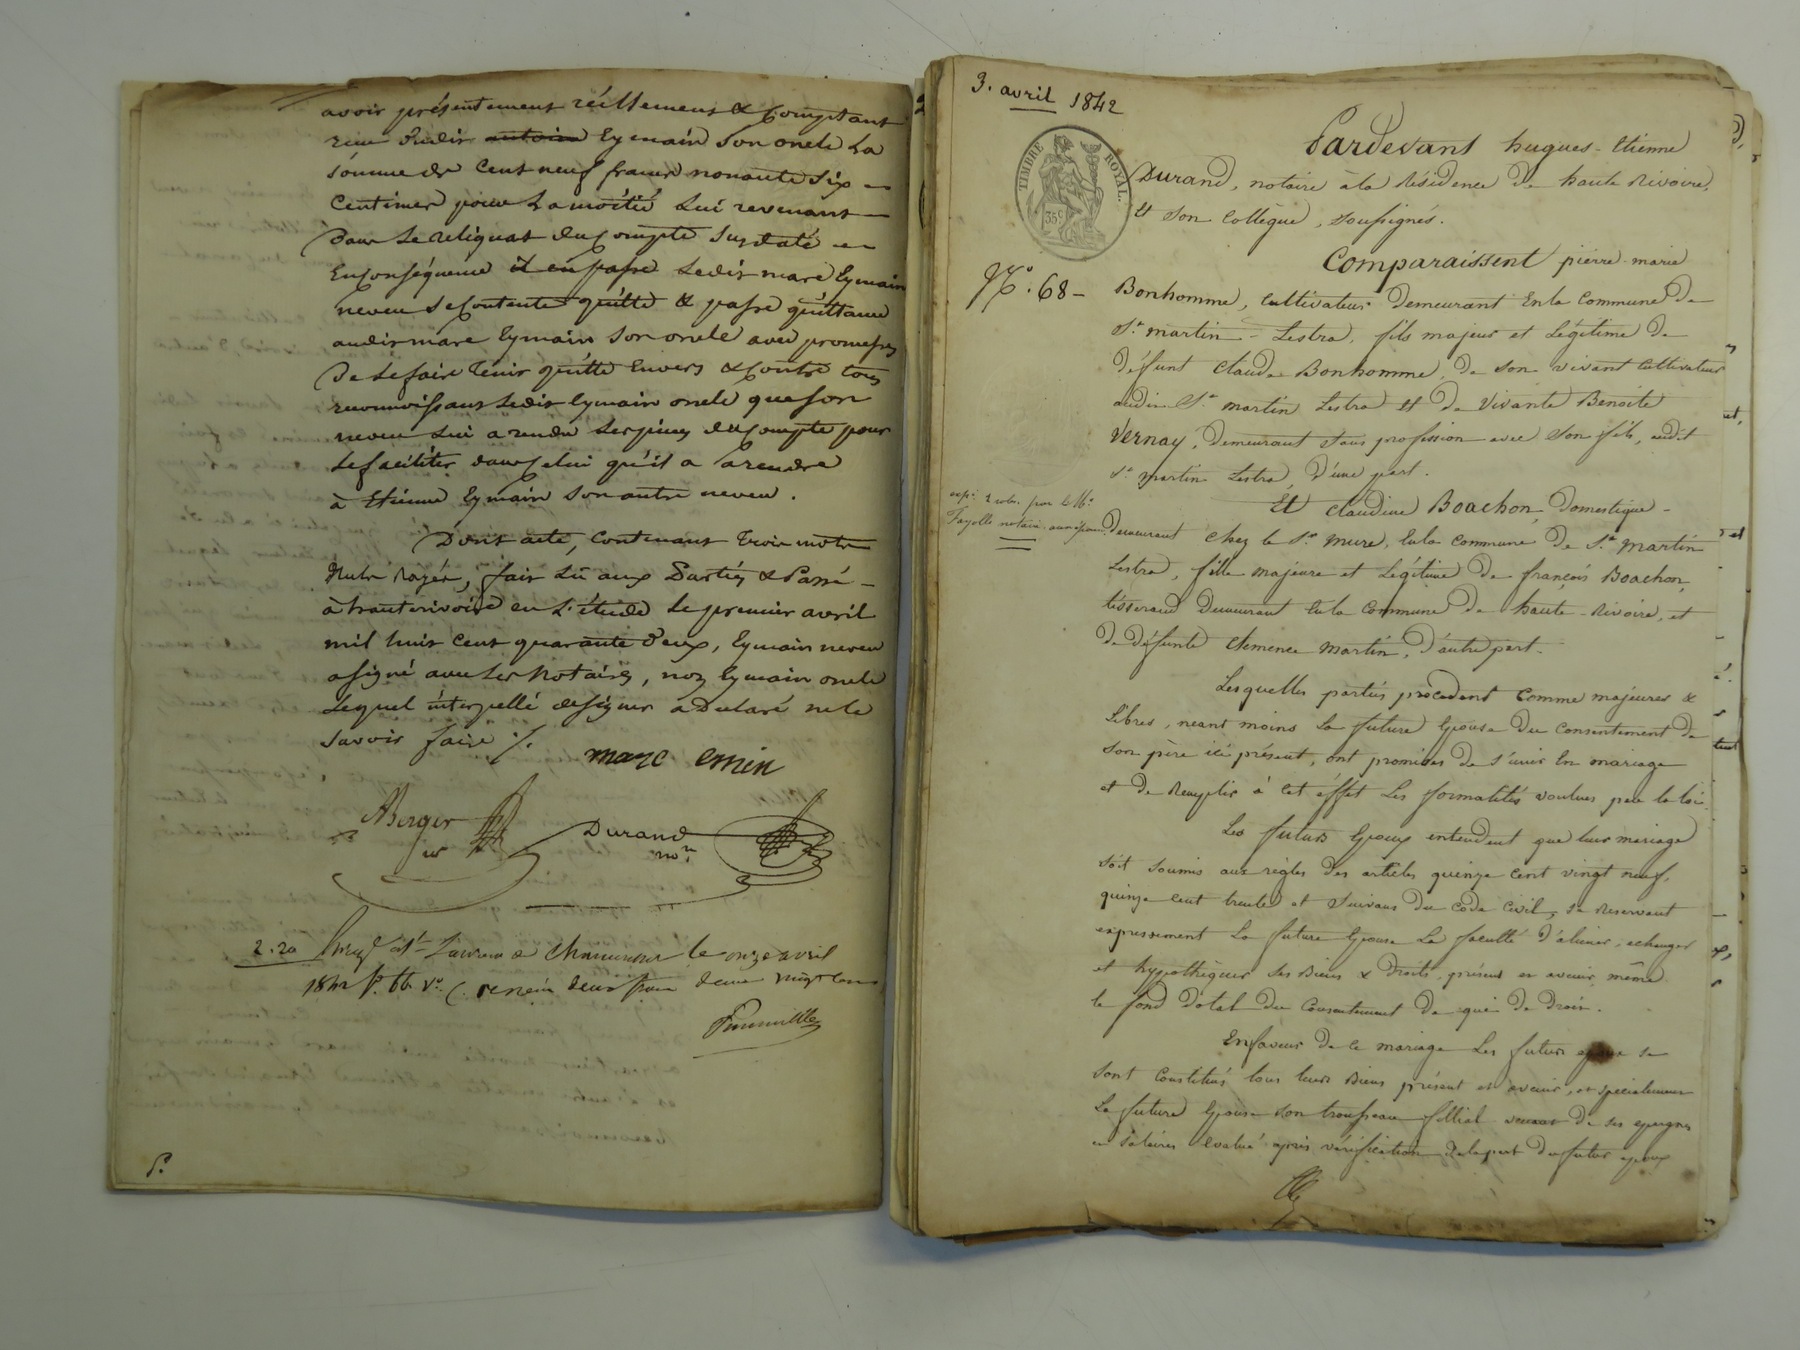 avoir présentement réellement & Comptant
reçu dudit antoine Eymain Son oncle La
somme de Cent neuf francs nonante Six
Centimes pour La moitié Lui revenant
Dans Le reliquat du Compte Susdaté
En conséquence il en passe Ledit marc Eymain
neveu Se Contente quitte & passe quittance
audit marc Eymain Son oncle avec promesse
De Le faire Tenir quitte Envers & Contre tous
reconnoissant Ledit Eymain oncle que Son
neveu Lui a rendu Les pièces du Compte pour
Le faciliter dans Celui qu'il a à rendre
à Etienne Eymain Son autre neveu.
Dont acte, Contenant Trois mots
Nuls Rayés, fait Lû aux Parties & Passé
à hauterivoire en L'étude Le premier avril
mil huit cent quarante deux, Eymain neveu
a signé avec Les Notaires, non Eymain oncle
Lequel interpellé de signer a Déclaré ne le
Savoir faire ./.
marc emin
Berger
Durand
nore
2.20 Enregé à St Laurent de Chamousset le onze avril
1842 fo. 66 Vo. C. reçu deux francs deux vingt cent
S.
3. avril 1842
Pardevant hugues-Etienne
TIMBRE ROYAL.
35c
Durand, notaire à la Résidence De haute Rivoire,
Et Son Collègue, soussignés.
Comparaissent pierre-marie
No. 68 -
Bonhomme, Cultivateur Demeurant En la Commune De
St. martin - Lestra, fils majeur et Légitime De
Défunt Claude Bonhomme, De Son vivant Cultivateur
audit St martin Lestra Et De Vivante Benoite
Vernay, Demeurant Sans profession avec Son fils, audit
St martin Lestra, D'une part.
Et Claudine Boachon, Domestique
exp.
Fayolle notaire
Demeurant chez le Sr. mure, En la Commune De St. martin
Lestra, fille majeure et Légitime De françois Boachon,
tisserand Demeurant En la Commune De haute-Rivoire, et
De Défunte Clemence martin, D'autre part.
Lesquelles parties procedent Comme majeures &
Libres, néant moins La future Epouse Du Consentement De
Son père ici présent, ont promises De s'unir En mariage
et De Remplir à Cet éffet Les formalités voulues par la loi.
Les futurs Epoux entendent que leur mariage
soit soumis aux règles Des articles quinze Cent vingt neuf,
quinze Cent trente et Suivans Du Code Civil, se Reservant
expressement La future Epouse La faculté D'aliéner, echanger
et hypothéquer Ses Biens & Droits, présens et avenir, même
le fond Dotal Du Consentement De qui De Droit.
En faveur De Ce mariage Les futurs epoux se
Sont Constitués tous leurs Biens présent et avenir, et spécialement
La future Epouse Son trousseau fillial venant De ses epargnes
en salaires Evalué après vérification De la part Du futur epoux